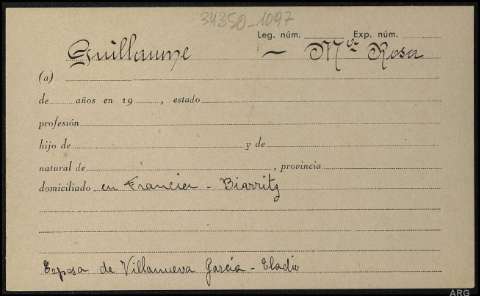 34350-1097
Leg. núm. Exp. núm.
Guillaume - Mª Rosa
(a)
de años en 19 , estado
profesión
hijo de y de
natural de , provincia
domiciliado en Francia - Biarritz
Esposa de Villanueva García - Eladio
ARG